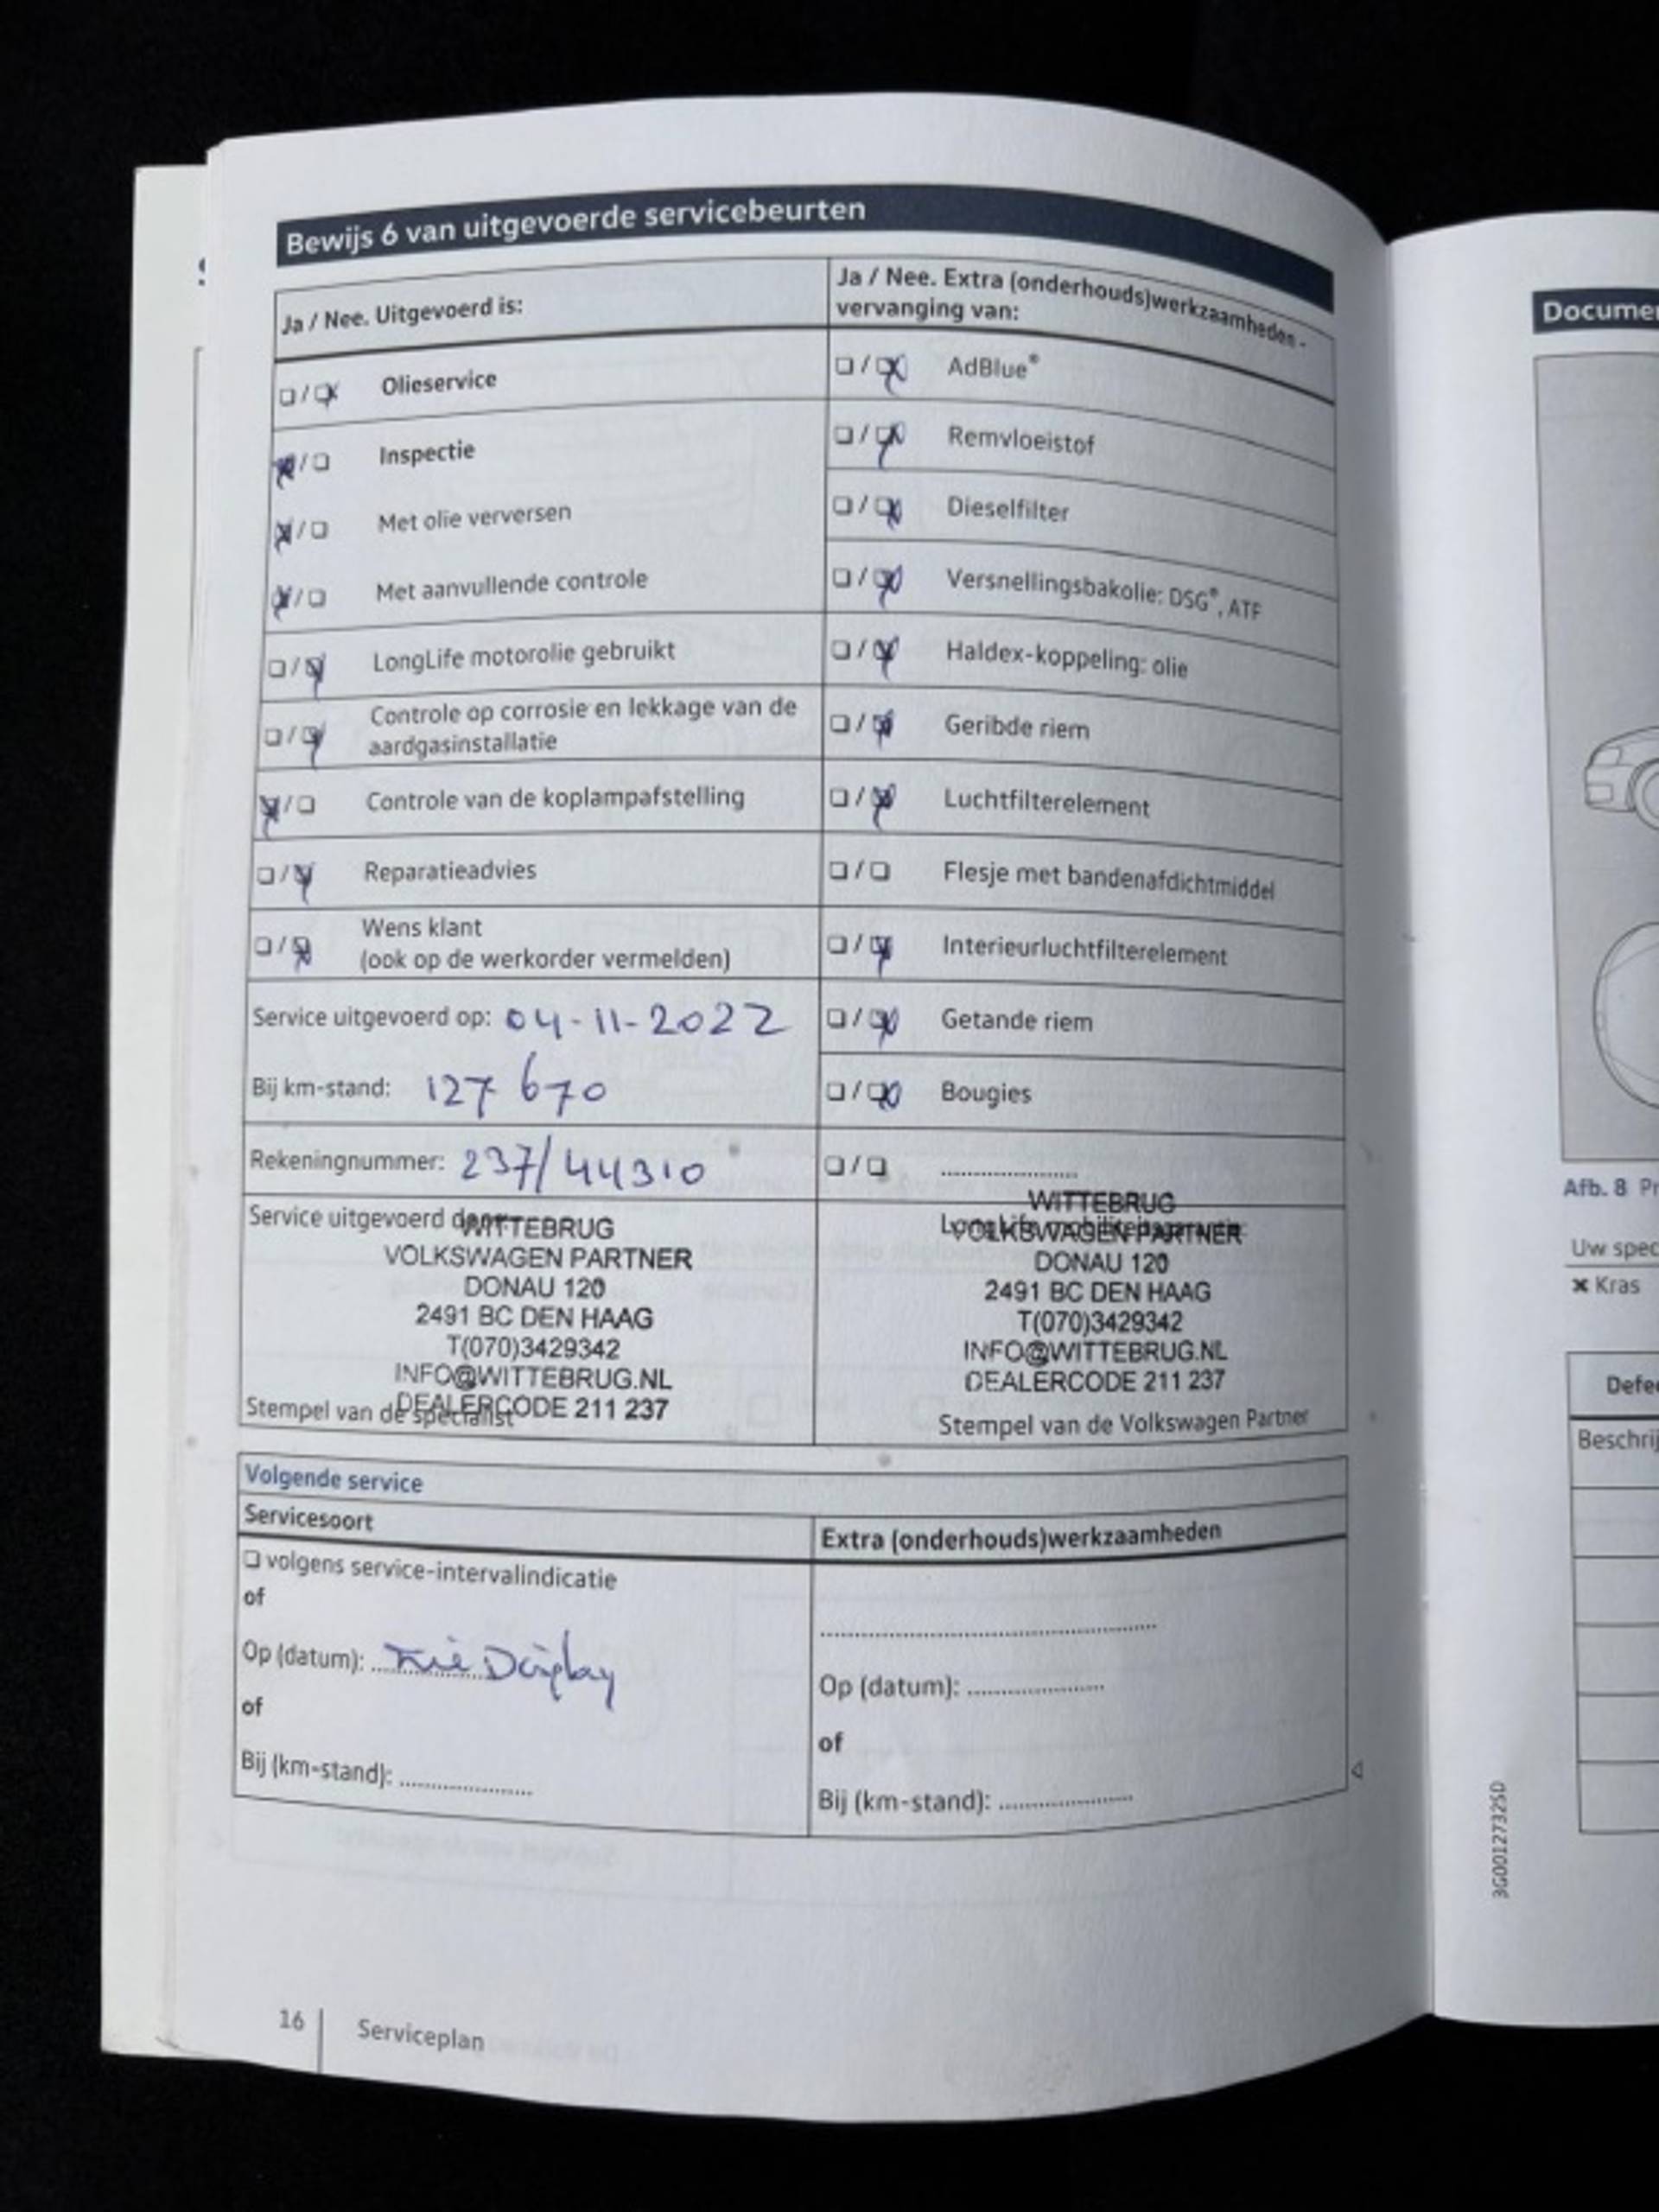 Bewijs 6 van uitgevoerde servicebeurten
Ja / Nee. Uitgevoerd is:
❏ / ❏ Olieservice
❏ / ❏ Inspectie
❏ / ❏ Met olie verversen
❏ / ❏ Met aanvullende controle
❏ / ❏ LongLife motorolie gebruikt
❏ / ❏ Controle op corrosie en lekkage van de
aardgasinstallatie
❏ / ❏ Controle van de koplampafstelling
❏ / ❏ Reparatieadvies
❏ / ❏ Wens klant
(ook op de werkorder vermelden)
Service uitgevoerd op: 04-11-2022
Bij km-stand: 127 670
Rekeningnummer: 237/44310
Service uitgevoerd door:
WITTEBRUG
VOLKSWAGEN PARTNER
DONAU 120
2491 BC DEN HAAG
T(070)3429342
INFO@WITTEBRUG.NL
DEALERCODE 211 237
Stempel van de specialist
Ja / Nee. Extra (onderhouds)werkzaamheden -
vervanging van:
❏ / ❏ AdBlue®
❏ / ❏ Remvloeistof
❏ / ❏ Dieselfilter
❏ / ❏ Versnellingsbakolie: DSG®, ATF
❏ / ❏ Haldex-koppeling: olie
❏ / ❏ Geribde riem
❏ / ❏ Luchtfilterelement
❏ / ❏ Flesje met bandenafdichtmiddel
❏ / ❏ Interieurluchtfilterelement
❏ / ❏ Getande riem
❏ / ❏ Bougies
❏ / ❏ ....................
WITTEBRUG
LongLife mobiliteitsgarantie:
VOLKSWAGEN PARTNER
DONAU 120
2491 BC DEN HAAG
T(070)3429342
INFO@WITTEBRUG.NL
DEALERCODE 211 237
Stempel van de Volkswagen Partner
Volgende service
Servicesoort
❏ volgens service-intervalindicatie
of
Op (datum): Display
of
Bij (km-stand): ....................
Extra (onderhouds)werkzaamheden
..................................................
Op (datum): ....................
of
Bij (km-stand): ....................
16 Serviceplan
Afb. 8
Uw spec
✖ Kras
3G0012732SD